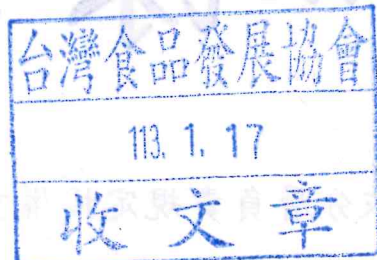 台灣食品發展協會
113. 1. 17
收文章